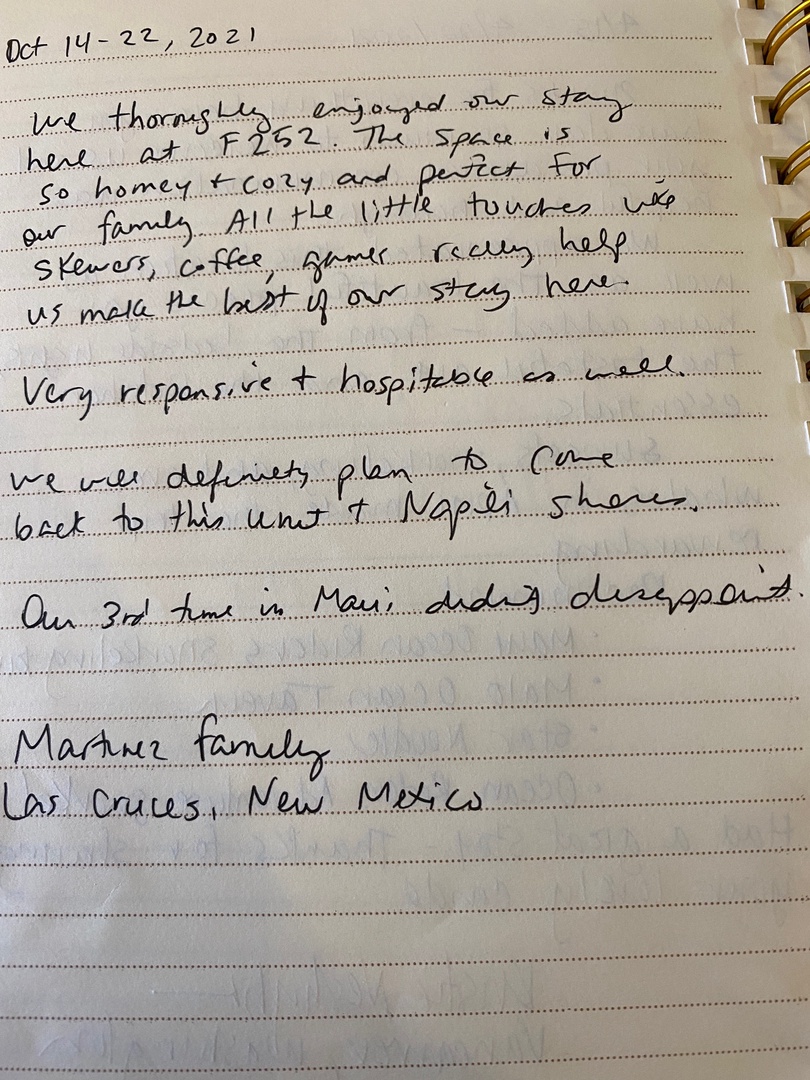 Oct 14-22, 2021
We thoroughly enjoyed our stay
here at F252. The space is
so homey + cozy and perfect for
our family. All the little touches like
skewers, coffee, games really help
us make the best of our stay here.
Very responsive + hospitable as well.
We will definitely plan to come
back to this unit + Napili shores.
Our 3rd time in Maui didn't disappoint.
Martinez family
Las Cruces, New Mexico